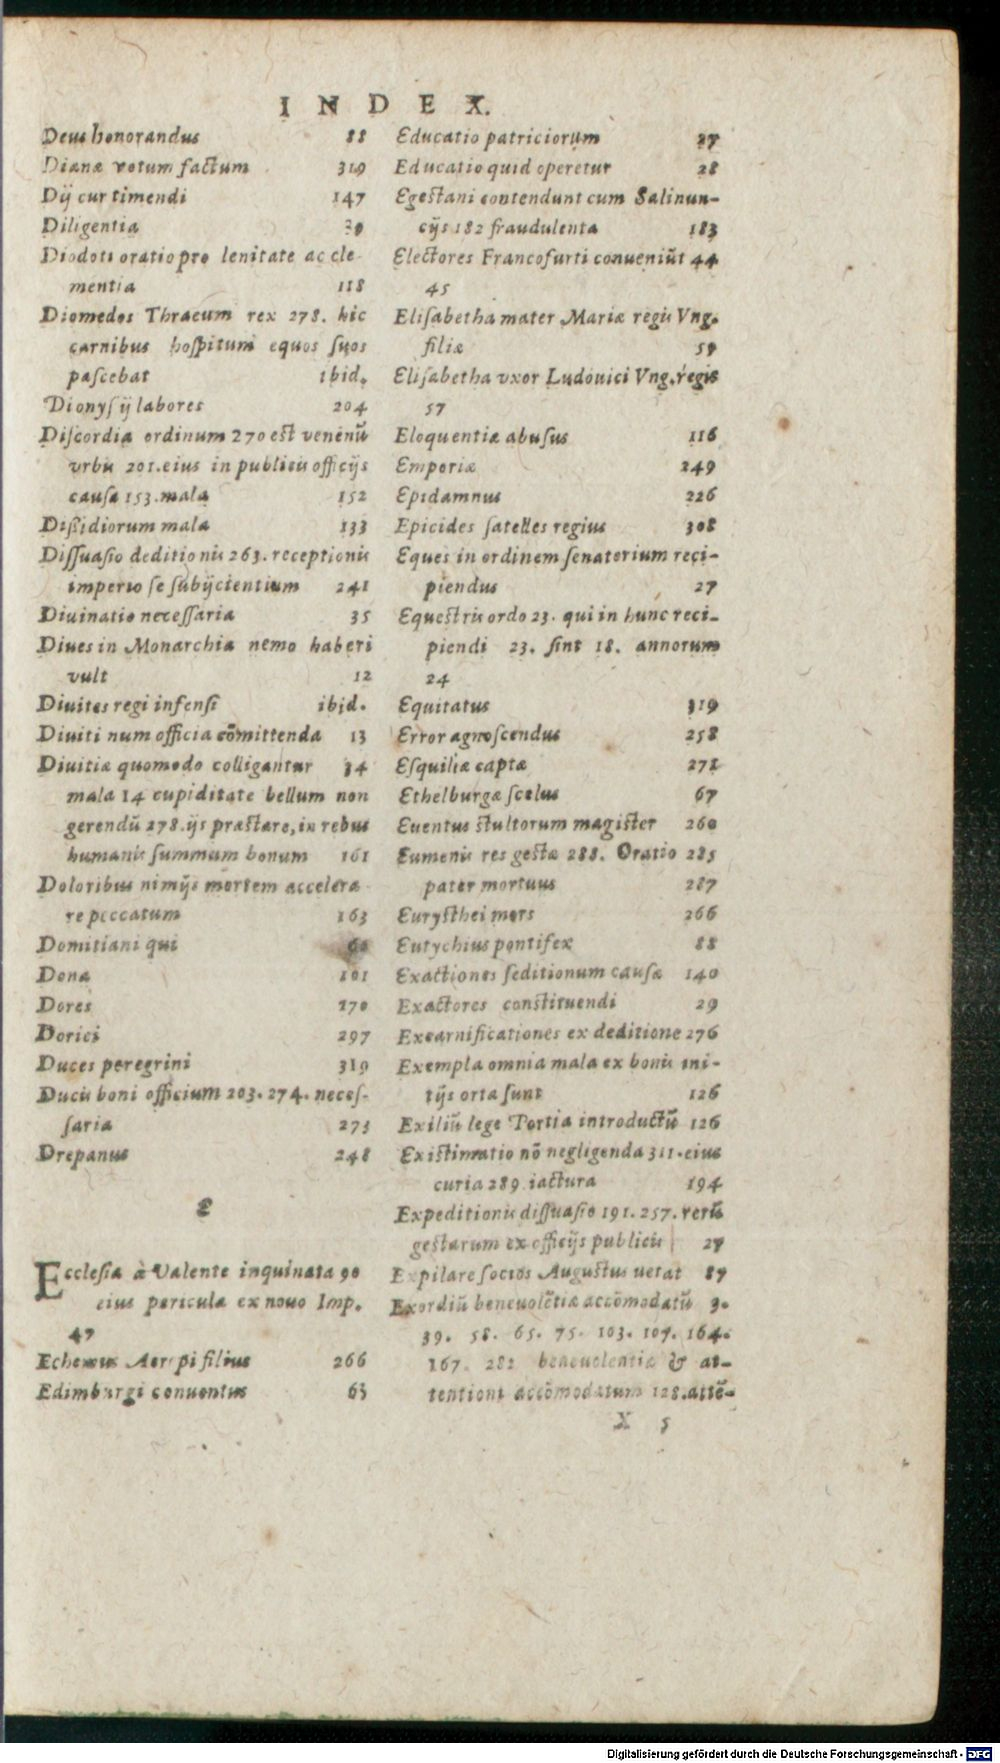 INDEX.
Deus honorandus 88
Dianæ votum factum 319
Dij cur timendi 147
Diligentia
Diodoti oratio pro lenitate ac cle-
mentia 118
Diomedes Thracum rex 278. hic
carnibus hoſpitum equos ſuos
paſcebat ibid.
Dionyſij labores 204
Diſcordia ordinum 270 eſt venenũ
vrbis 201. eius in publicis officijs
cauſa 153. mala 152
Diſſidiorum mala 133
Diſſuaſio deditionis 263. receptionis
imperio ſe ſubijcientium 241
Diuinatio neceſſaria 35
Diues in Monarchia nemo haberi
vult 12
Diuites regi infenſi ibid.
Diuiti num officia cõmittenda 13
Diuitiæ quomodo colligantur 34
mala 14 cupiditate bellum non
gerendũ 278. ijs præſtare, in rebus
humanis ſummum bonum 161
Doloribus nimijs mortem accelera
re peccatum 163
Domitiani qui 60
Dona 101
Dores 270
Dorici 297
Duces peregrini 319
Ducis boni officium 203. 274. neceſ-
ſaria 273
Drepanus 248
E
Eccleſia à Valente inquinata 90
eius pericula ex nouo Imp.
47
Echemus Aeropi filius 266
Edimburgi conuentus 63
Educatio patriciorum 27
Educatio quid operetur 28
Egeſtani contendunt cum Salinun-
cijs 182 fraudulenta 183
Electores Francofurti conueniũt 44
45
Eliſabetha mater Mariæ regis Vng.
filiæ 59
Eliſabetha vxor Ludouici Vng. regis
57
Eloquentiæ abuſus 116
Emporiæ 249
Epidamnus 226
Epicides ſatelles regius 308
Eques in ordinem ſenatorium reci-
piendus 27
Equeſtris ordo 23. qui in hunc reci-
piendi 23. ſint 18. annorum
24
Equitatus 319
Error agnoſcendus 258
Eſquiliæ captæ 271
Ethelburgæ ſcelus 67
Euentus ſtultorum magiſter 260
Eumenis res geſtæ 288. Oratio 285
pater mortuus 287
Euryſthei mors 266
Eutychius pontifex 88
Exactiones ſeditionum cauſæ 140
Exactores conſtituendi 29
Excarnificationes ex deditione 276
Exempla omnia mala ex bonis ini-
tijs orta ſunt 126
Exiliũ lege Portia introductũ 126
Exiſtimatio nõ negligenda 311. eius
curia 289. iactura 194
Expeditionis diſſuaſio 191. 257. rerũ
geſtarum ex officijs publicis 27
Expilare ſocios Auguſtus uetat 87
Exordiũ beneuolẽtiæ accõmodatũ 3.
39. 58. 65. 75. 103. 107. 164.
167. 282 beneuolentiæ & at-
tentioni accõmodatum 128. attẽ-
X 5
Digitalisierung gefördert durch die Deutsche Forschungsgemeinschaft - DFG